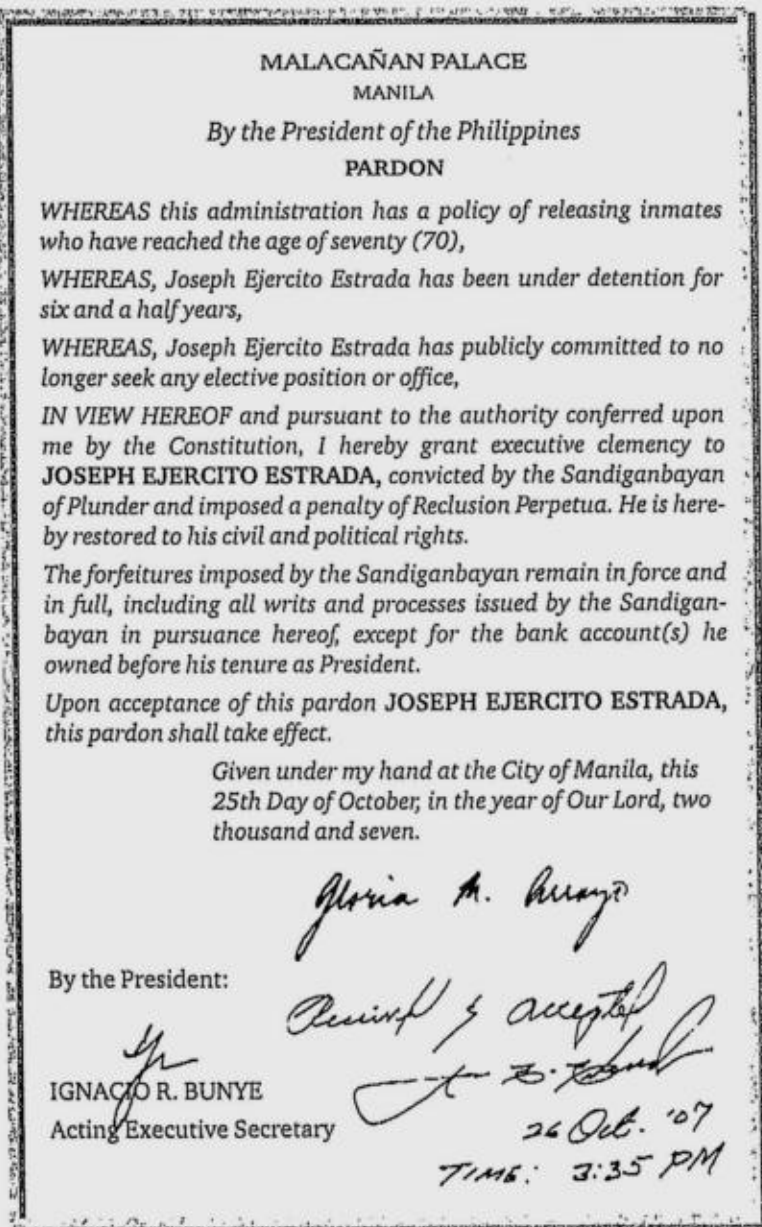 MALACAÑAN PALACE
MANILA
By the President of the Philippines
PARDON
WHEREAS this administration has a policy of releasing inmates
who have reached the age of seventy (70),
WHEREAS, Joseph Ejercito Estrada has been under detention for
six and a half years,
WHEREAS, Joseph Ejercito Estrada has publicly committed to no
longer seek any elective position or office,
IN VIEW HEREOF and pursuant to the authority conferred upon
me by the Constitution, I hereby grant executive clemency to
JOSEPH EJERCITO ESTRADA, convicted by the Sandiganbayan
of Plunder and imposed a penalty of Reclusion Perpetua. He is here-
by restored to his civil and political rights.
The forfeitures imposed by the Sandiganbayan remain in force and
in full, including all writs and processes issued by the Sandigan-
bayan in pursuance hereof, except for the bank account(s) he
owned before his tenure as President.
Upon acceptance of this pardon JOSEPH EJERCITO ESTRADA,
this pardon shall take effect.
Given under my hand at the City of Manila, this
25th Day of October, in the year of Our Lord, two
thousand and seven.
Gloria M. Arroyo
By the President:
Received & accepted
IGNACIO R. BUNYE
Acting Executive Secretary
26 Oct. '07
TIME: 3:35 PM